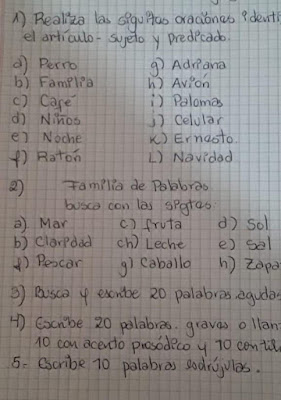 1) Realiza las sigutas oraciones identi
el artículo - sujeto y predicado.
a) Perro g) Adriana
b) Familia h) Avión
c) Café i) Palomas
d) Niños j) Celular
e) Noche K) Ernesto
f) Ratón L) Navidad
2) Familia de Palabras
busca con las sigtes
a) Mar c) fruta d) Sol
b) Claridad ch) Leche e) Sal
f) Pescar g) Caballo h) Zapa
3) Busca y escribe 20 palabras agudas
4) Escribe 20 palabras. graves o llan
10 con acento prosódico y 10 con til
5- Escribe 10 palabras esdrújulas.